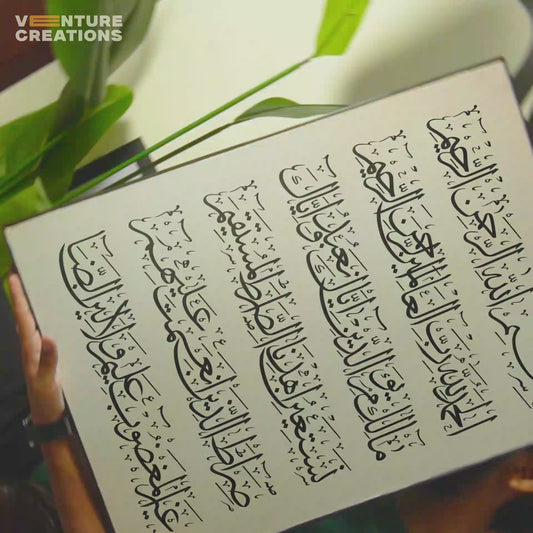 VENTURE
CREATIONS
بسم الله الرحمن الرحيم
الحمد لله رب العالمين الرحمن الرحيم
مالك يوم الدين إياك نعبد وإياك
نستعين اهدنا الصراط المستقيم
صراط الذين أنعمت عليهم
غير المغضوب عليهم ولا الضا